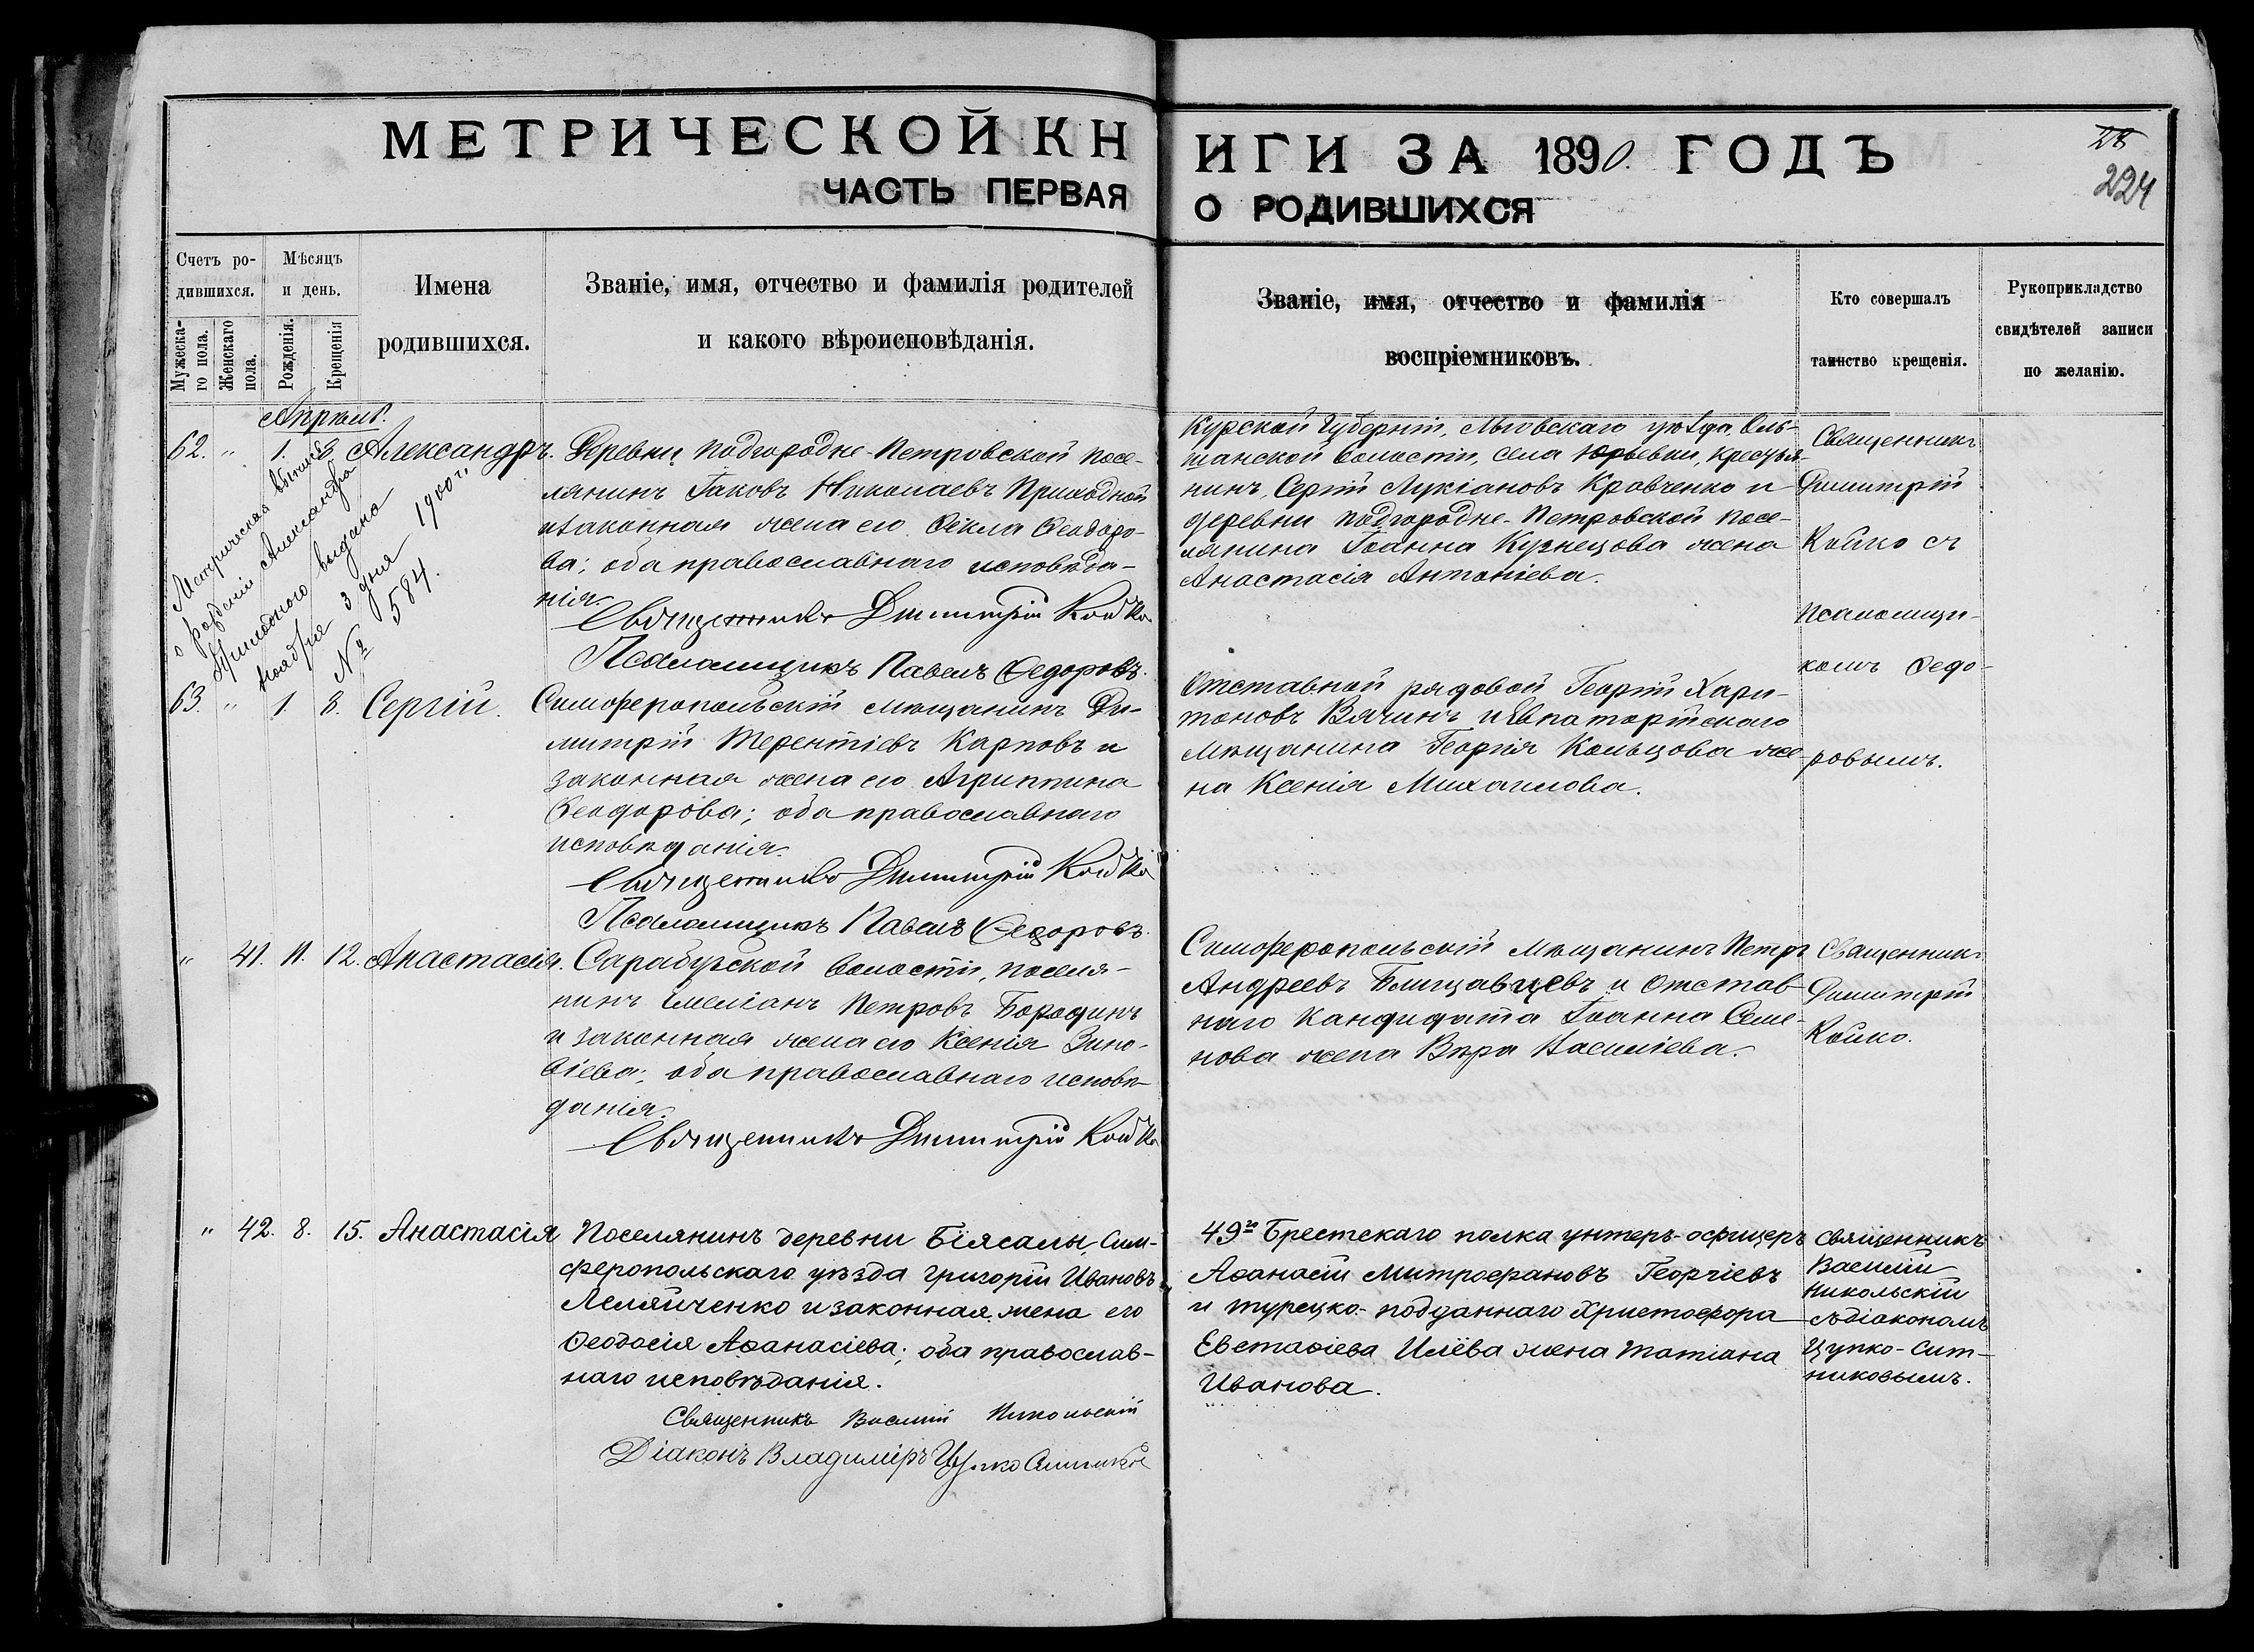 МЕТРИЧЕСКОЙ КНИГИ ЗА 1890. ГОДЪ
ЧАСТЬ ПЕРВАЯ О РОДИВШИХСЯ
28
224
Счетъ родившихся.
Мужескаго пола.
Женскаго пола.
Мѣсяцъ и день.
Рожденія.
Крещенія
Имена
родившихся.
Званіе, имя, отчество и фамилія родителей
и какого вѣроисповѣданія.
Званіе, имя, отчество и фамилія
воспріемниковъ.
Кто совершалъ
таинство крещенія.
Рукоприкладство
свидѣтелей записи
по желанію.
Апрѣль.
62. " 1. 8. Александръ.
Деревни Подгородне-Петровской посе-
лянинъ Іаковъ Николаевъ Приходной
и законная жена его Ѳекла Ѳеодоро-
ва; оба православнаго исповѣда-
нія.
Священникъ Димитрій Койко
Псаломщикъ Павелъ Ѳедоровъ.
Метрическая выпись
о рожденіи Александра
Приходного выдана
ноября 3 дня 1900 г.
№ 584.
Курской Губерніи, Льговскаго уѣзда, Оль-
шанской волости, села Юрьевки, крестья-
нинъ, Сергій Лукіановъ Кравченко и
деревни Подгородне-Петровской посе-
лянина Іоанна Кузнецова жена
Анастасія Антоніева.
Священникъ
Димитрій
Койко съ
псаломщи-
комъ Ѳедо-
ровымъ.
63. " 1. 8. Сергій.
Симферопольскій мѣщанинъ Ди-
митрій Терентіевъ Карповъ и
законная жена его Агриппина
Ѳеодорова; оба православнаго
исповѣданія.
Священникъ Димитрій Койко
Псаломщикъ Павелъ Ѳедоровъ.
Отставной рядовой Георгій Хари-
тоновъ Вячинъ и Евпаторійскаго
мѣщанина Георгія Кольцова же-
на Ксенія Михаилова.
" 41. 11. 12. Анастасія.
Сарабузской волости, поселя-
нинъ Емеліанъ Петровъ Бородинъ
и законная жена его Ксенія Зино-
віева; оба православнаго исповѣ-
данія.
Священникъ Димитрій Койко
Симферопольскій мѣщанинъ Петръ
Андреевъ Блищавцевъ и отстав-
наго кандидата Іоанна Семе-
нова жена Вѣра Василіева.
Священникъ
Димитрій
Койко.
" 42. 8. 15. Анастасія
Поселянинъ деревни Біясалы, Сим-
феропольскаго уѣзда Григорій Ивановъ
Лемяйченко и законная жена его
Ѳеодосія Аѳанасіева; оба православ-
наго исповѣданія.
Священникъ Василій Никольскій
Діаконъ Владиміръ Цупко Ситников
49го Брестскаго полка унтеръ-офицеръ
Аѳанасій Митрофановъ Георгіевъ
и турецко-подданнаго Христофора
Евстафіева Илёва жена Татіана
Иванова.
Священникъ
Василій
Никольскій
съ діакономъ
Цупко-Сит-
никовымъ.